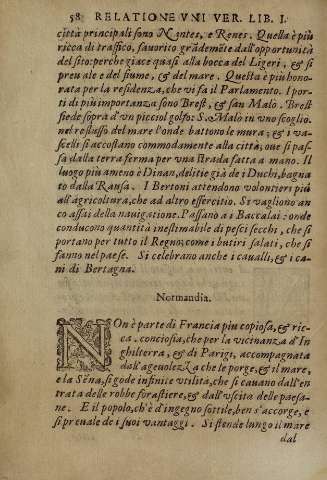 58 RELATIONE VNI VER. LIB. I.
città principali sono Nantes, e Renes. Quella è più
ricca di traffico, fauorito grãdemẽte dall'opportunità
del sito: perche giace quasi alla bocca del Ligeri, & si
preuale e del fiume, & del mare. Questa e più hono-
rata per la residenza, che vi fa il Parlamento. I por-
ti di più importanza sono Brest, & san Malo. Brest
siede sopra d'vn picciol golfo: S. Malo in vno scoglio.
nel reflusso del mare l'onde battono le mura; & i va-
scelli si accostano commodamente alla città, oue si pas-
sa dalla terra ferma per vna strada fatta a mano. Il
luogo più ameno è Dinan, delitie già de i Duchi, bagna
to dalla Ransa. I Bertoni attendono volontieri più
all'agricoltura, che ad altro essercitio. Si vagliono an
co assai della nauigatione. Passano a i Baccalai: onde
conducono quantità inestimabile di pesci secchi, che si
portano per tutto il Regno; come i butiri salati, che si
fanno nel paese. Si celebrano anche i caualli, & i ca-
ni di Bertagna.
Normandia.
NOn è parte di Francia piu copiosa, & ric-
ca. conciosia, che per la vicinanza d'In
ghilterra, & di Parigi, accompagnata
dall'ageuolezza che le porge, & il mare,
e la Sena, si gode infinite vtilità, che si cauano dall'en
trata delle robbe forastiere, & dall'vscita delle paesa-
ne. E il popolo, ch'è d'ingegno sottile, ben s'accorge, e
si preuale de i suoi vantaggi. Si stende lungo il mare
dal